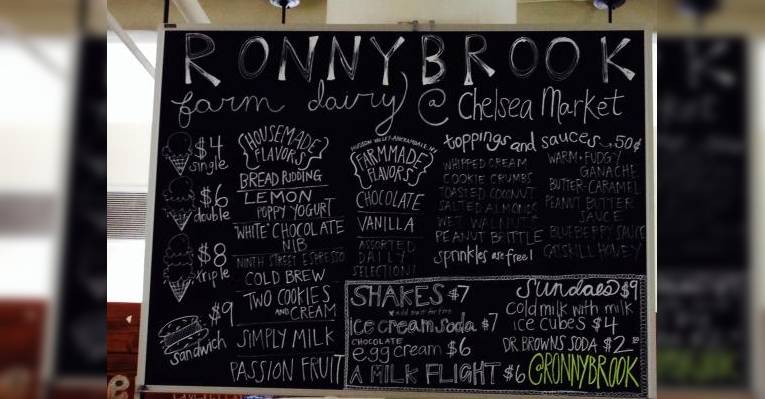 RONNYBROOK
farm dairy @ Chelsea Market
$4
single
$6
double
$8
triple
$9
sandwich
HOUSEMADE
FLAVORS
BREAD PUDDING
LEMON
POPPY YOGURT
"WHITE" CHOCOLATE
NIB
NINTH STREET ESPRESSO
COLD BREW
TWO COOKIES
AND CREAM
SIMPLY MILK
PASSION FRUIT
HUDSON VALLEY-ANCRAMDALE, NY
FARMMADE
FLAVORS
CHOCOLATE
VANILLA
ASSORTED
DAILY
SELECTION!
toppings and sauces .50¢
WHIPPED CREAM
COOKIE CRUMBS
TOASTED COCONUT
SALTED ALMONDS
WET WALNUTS
PEANUT BRITTLE
sprinkles are free!
WARM + FUDGY
GANACHE
BUTTER-CARAMEL
PEANUT BUTTER
SAUCE
BLUEBERRY SAUCE
CATSKILL HONEY
SHAKES $7
ice cream soda $7
CHOCOLATE
egg cream $6
A MILK FLIGHT $6
sundaes $9
cold milk with milk
ice cubes $4
DR. BROWNS SODA $2
@RONNYBROOK